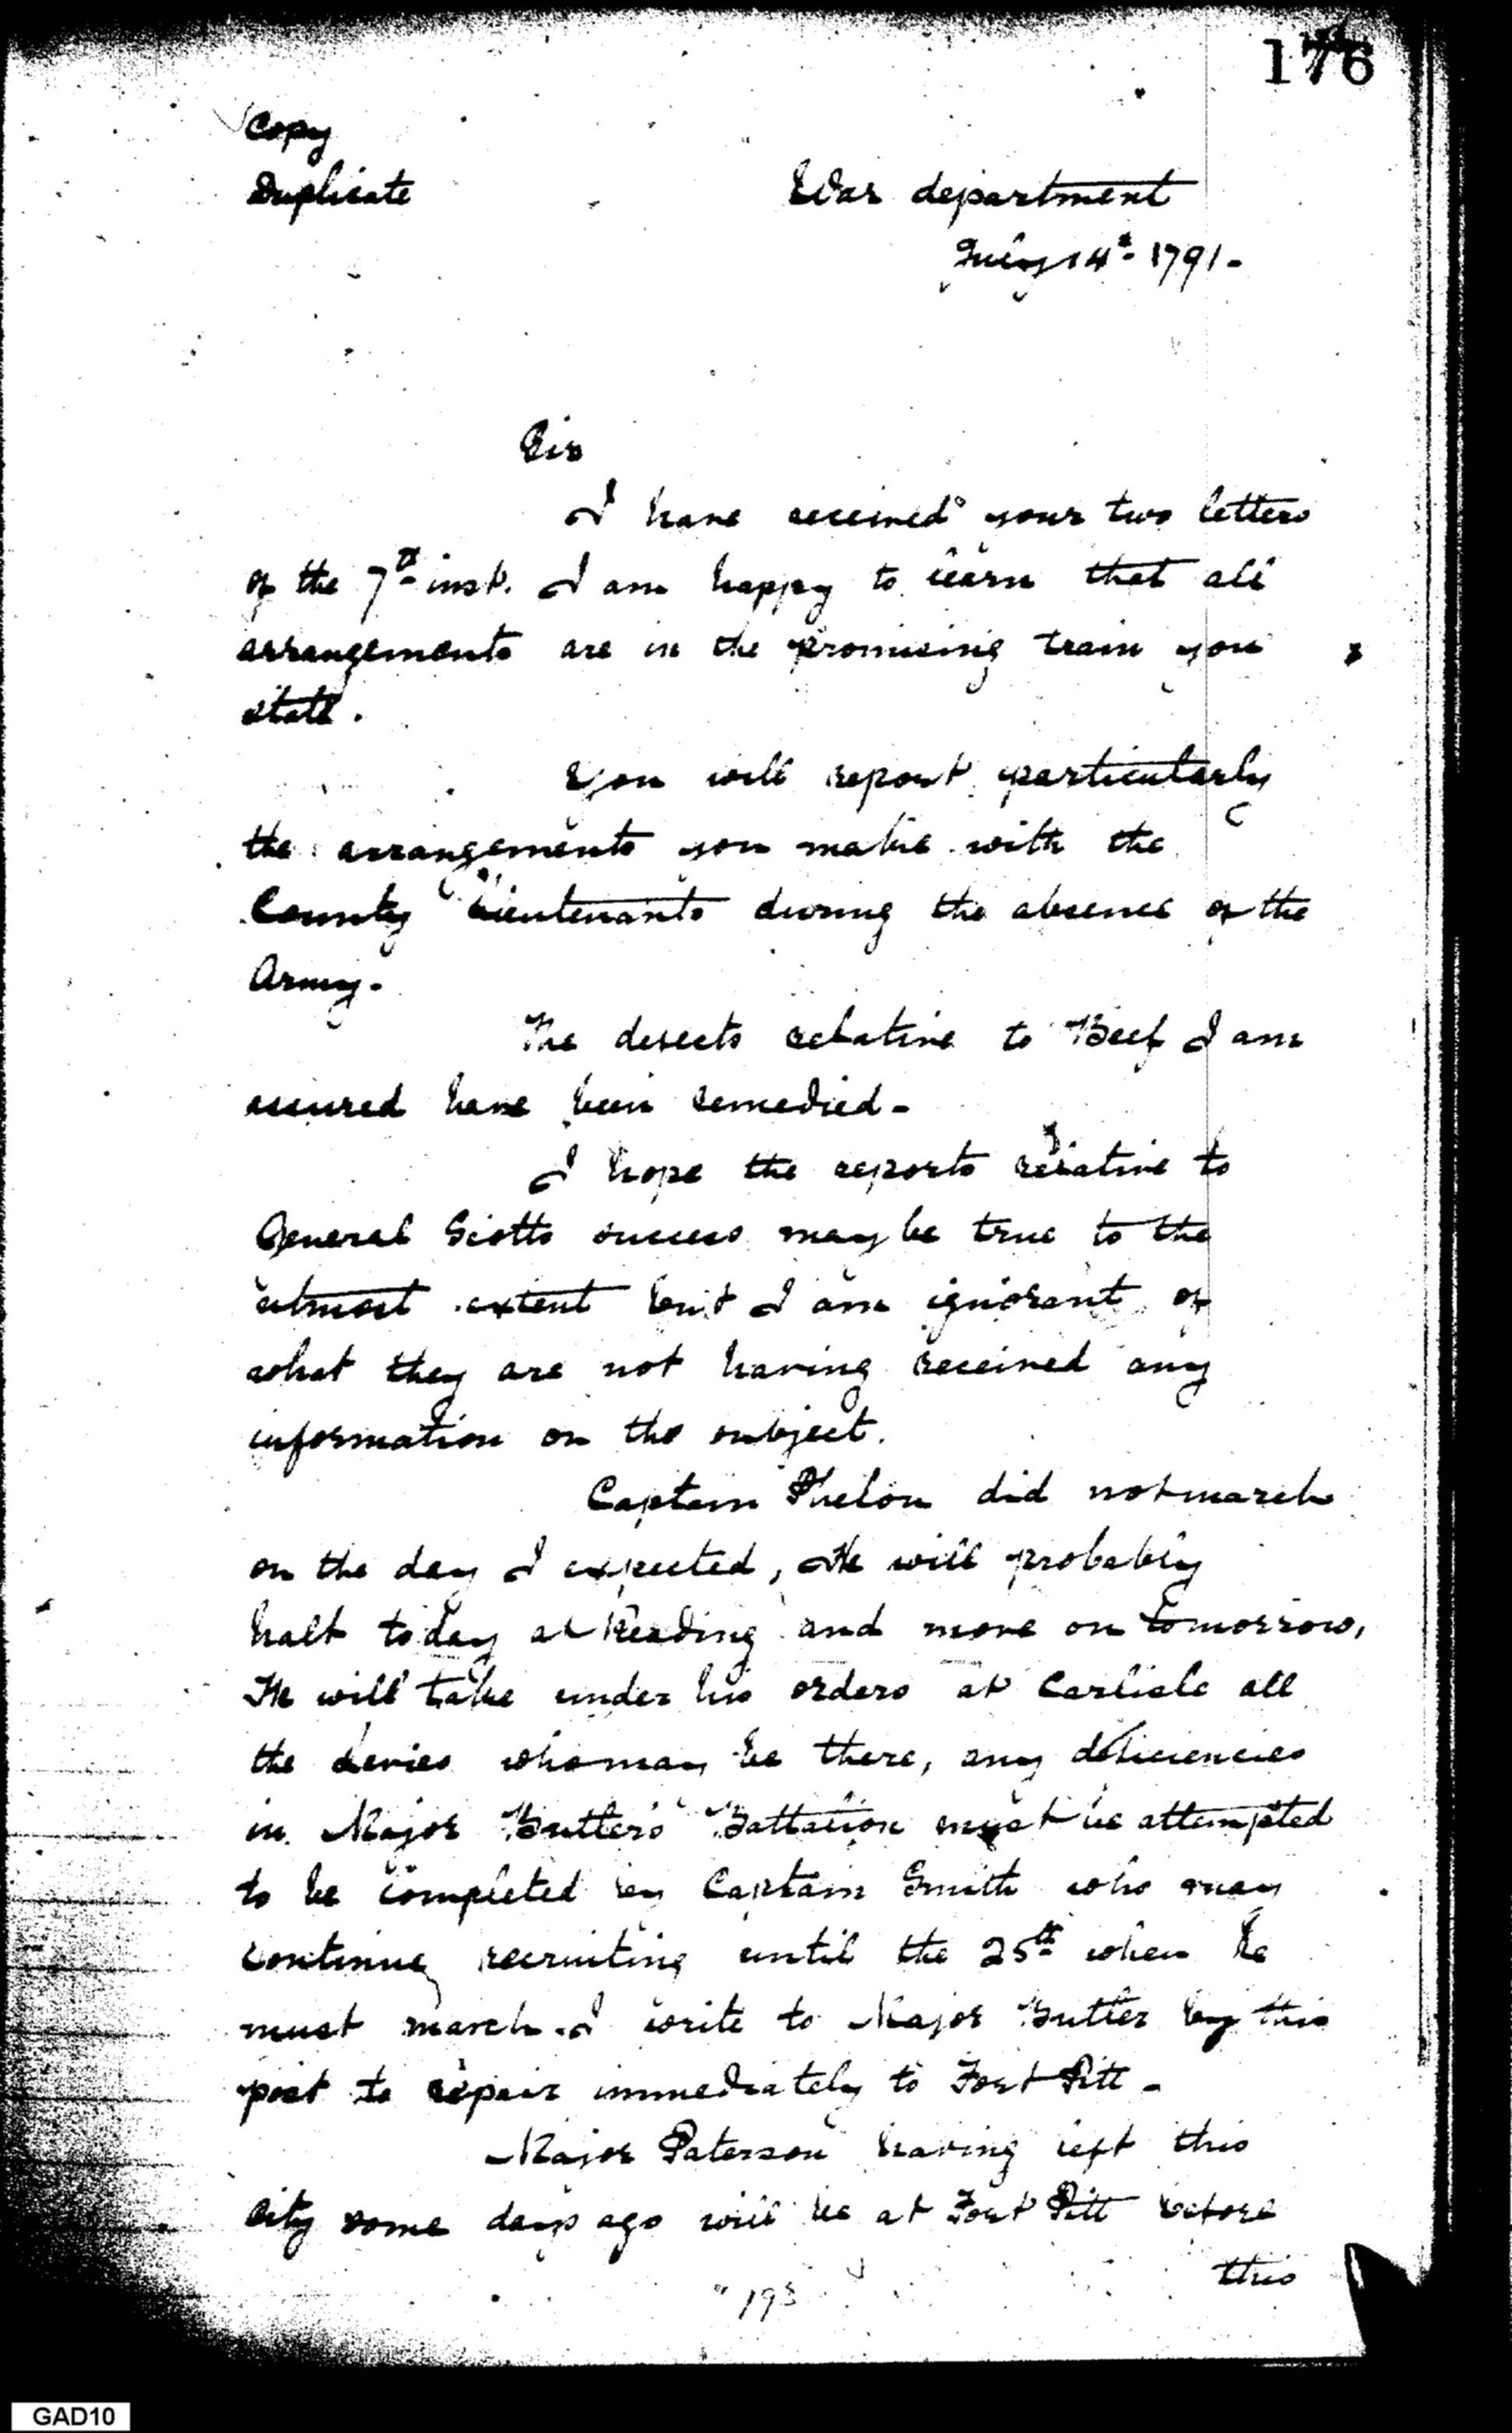 176
Copy
Duplicate
War department
July 14th 1791-
Sir
I have received your two letters
of the 7th inst. I am happy to learn that all
arrangements are in the promising train you
state.
You will report particularly
the arrangements you make with the
County Lieutenants during the absence of the
Army-
The defects relative to Beef I am
assured have been remedied-
I hope the reports relative to
General Scotts success may be true to the
utmost extent but I am ignorant of
what they are not having received any
information on the subject.
Captain Phelon did not march
on the day I expected, He will probably
halt today at Reading and move on tomorrow,
He will take under his orders at Carlisle all
the levies who may be there, any deficiencies
in Major Butler's Battalion must be attempted
to be completed by Captain Smith who may
continue recruiting until the 25th when he
must march. I write to Major Butler by this
post to repair immediately to Fort Pitt-
Major Paterson having left this
city some days ago will be at Fort Pitt before
this
GAD10